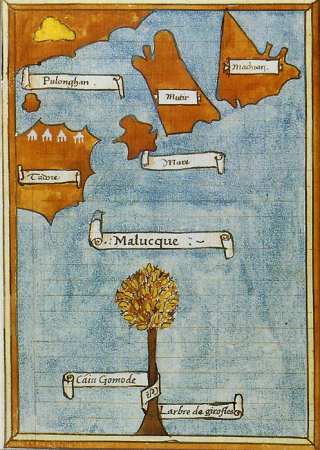 Pulonghan.
Mutir
Machian.
Mare
Tadore
:Malucque:~
Caiu Gomode
Larbre de girofles